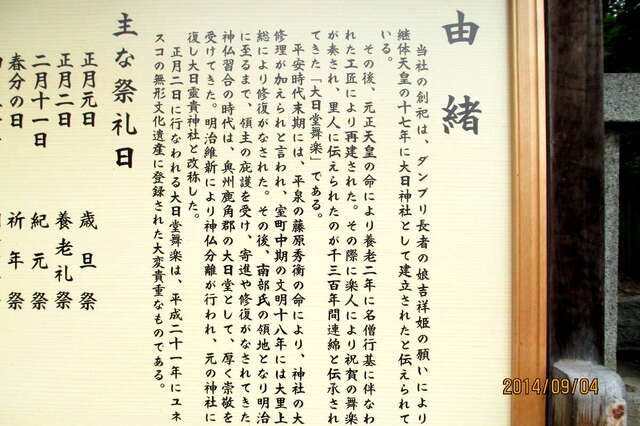 由緒
当社の創祀は、ダンブリ長者の娘吉祥姫の願いにより
継体天皇の十七年に大日神社として建立されたと伝えられて
いる。
その後、元正天皇の命により養老二年に名僧行基に伴なわ
れた工匠により再建された。その際に楽人により祝賀の舞楽
が奏され、里人に伝えられたのが千三百年間連綿と伝承され
てきた「大日堂舞楽」である。
平安時代末期には、平泉の藤原秀衡の命により、神社の大
修理が加えられと言われ、室町中期の文明十八年には大里上
総により修復がなされた。その後、南部氏の領地となり明治
に至るまで、領主の庇護を受け、寄進や修復がなされてきた
神仏習合の時代は、奥州鹿角郡の大日堂として、厚く崇敬を
受けてきた。明治維新により神仏分離が行われ、元の神社に
復し大日霊貴神社と改称した。
正月二日に行なわれる大日堂舞楽は、平成二十一年にユネ
スコの無形文化遺産に登録された大変貴重なものである。
主な祭礼日
正月元日 歳旦祭
正月二日 養老礼祭
二月十一日 紀元祭
春分の日 祈年祭
2014/09/04